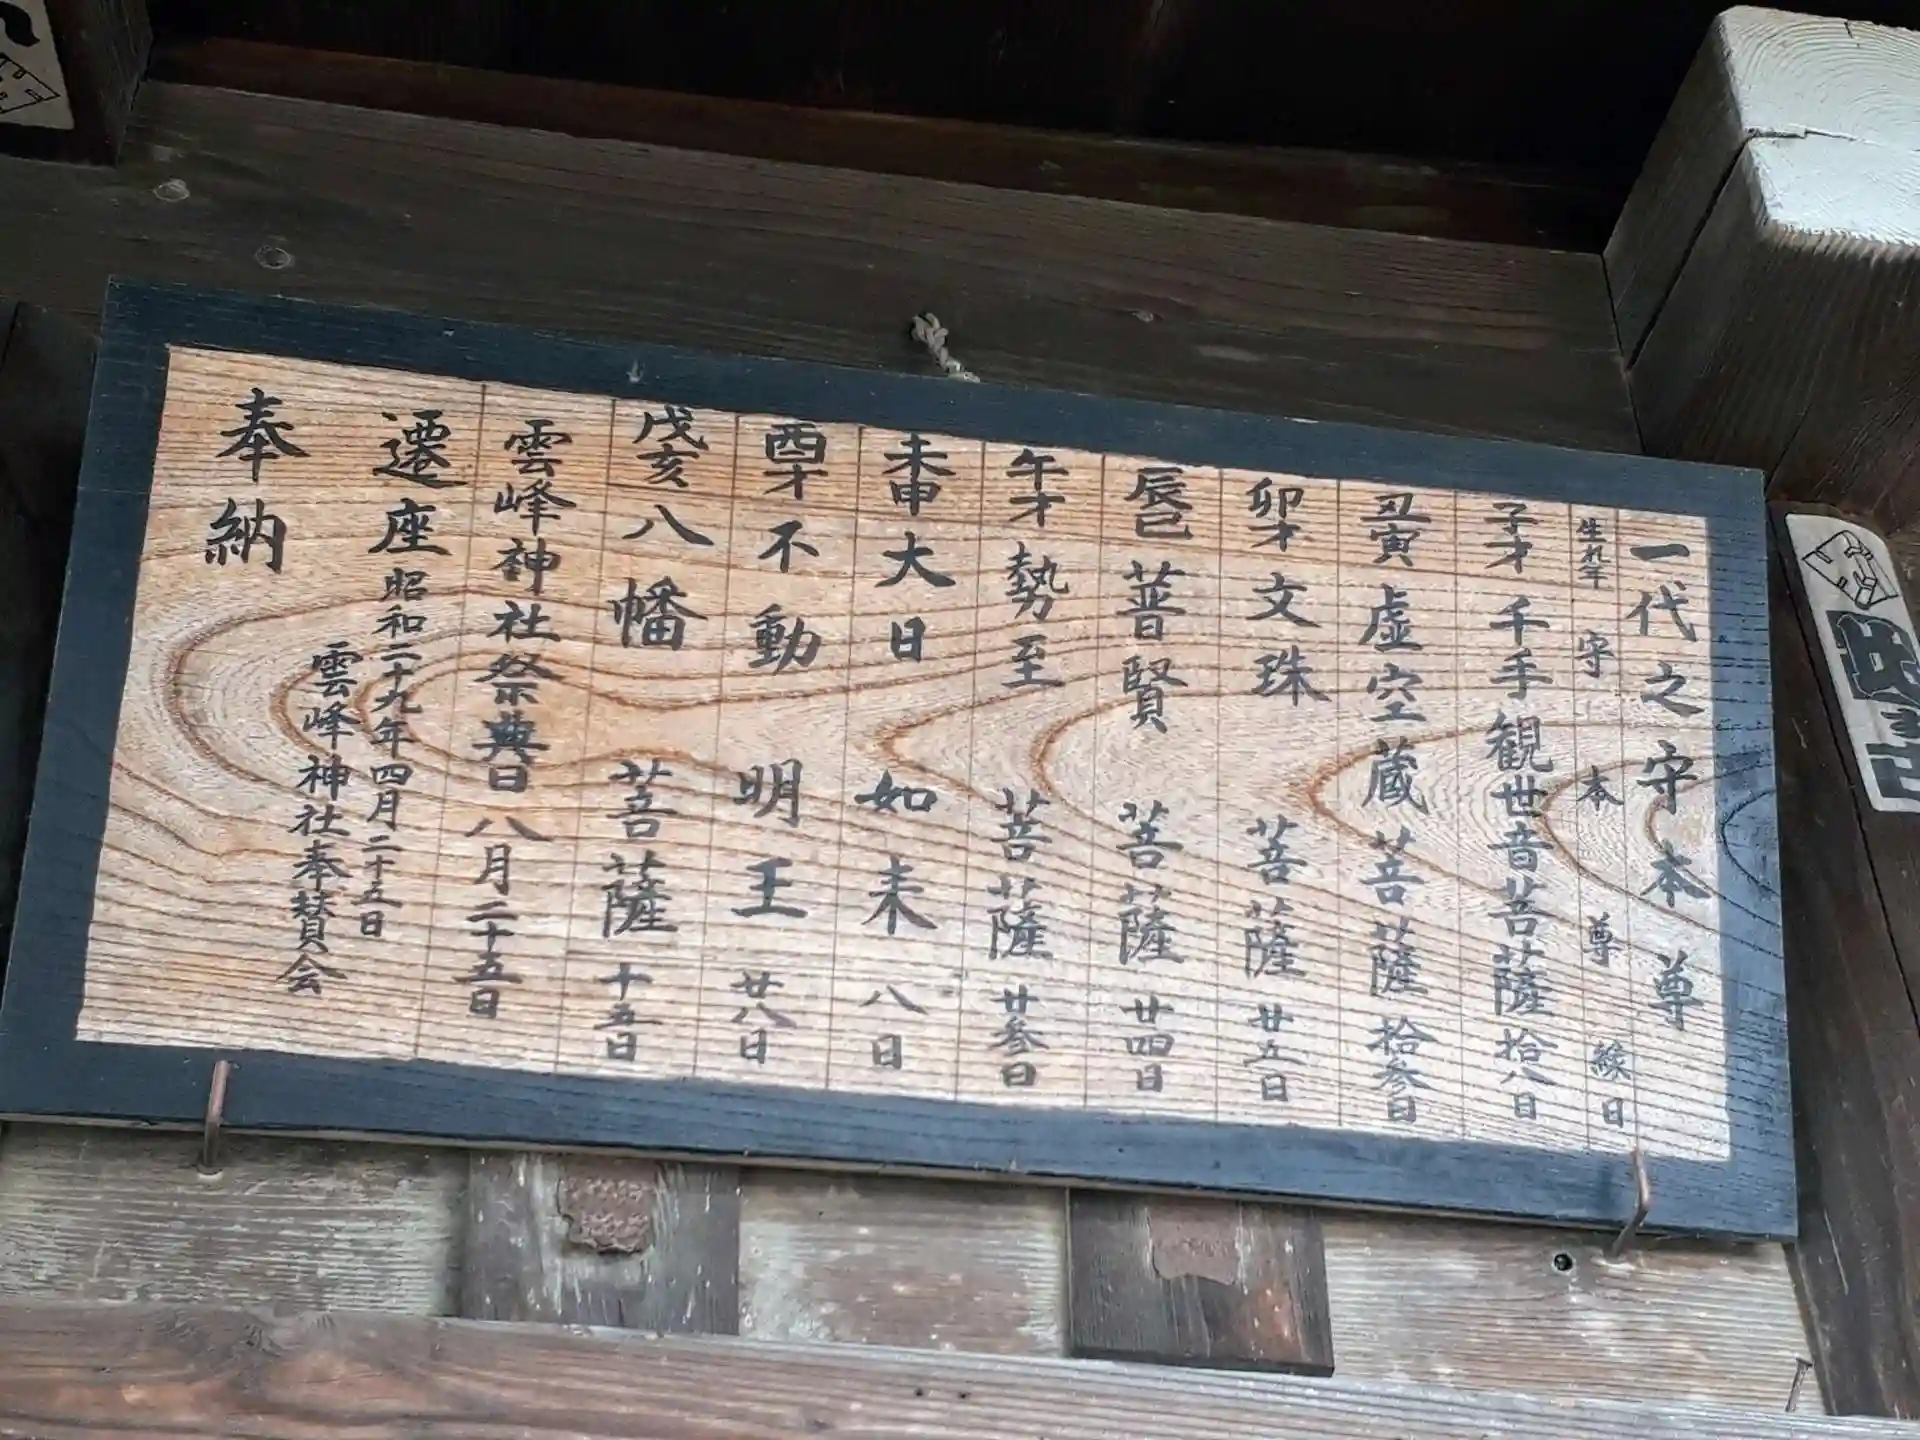 一代之守本尊
生れ年 守 本 尊 縁日
子才 千手観世音菩薩 拾八日
丑寅 虚空蔵菩薩 拾参日
卯才 文珠 菩薩 廿五日
辰巳 普賢 菩薩 廿四日
午才 勢至 菩薩 廿参日
未申 大日 如来 八日
酉才 不動 明王 廿八日
戌亥 八幡 菩薩 十五日
雲峰神社祭典日 八月二十五日
遷座 昭和二十九年四月二十五日
雲峰神社奉賛会
奉納